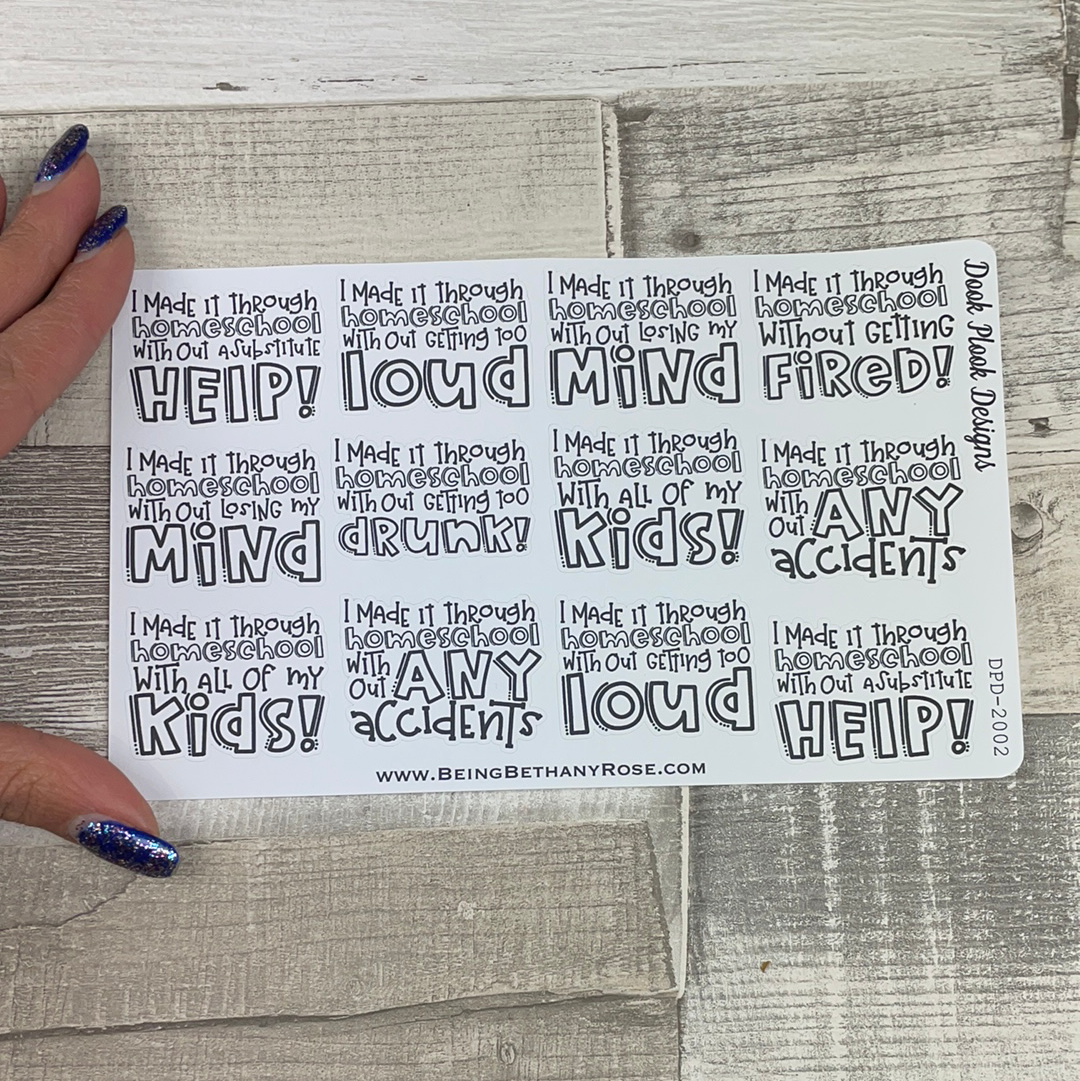 I MADE IT THROUGH
homeschool
WITH OUT A SUBSTITUTE
HELP!
I MADE IT THROUGH
homeschool
WITH OUT GETTING TOO
loud
I MADE IT THROUGH
homeschool
WITH OUT LOSING MY
MiNd
I MADE IT THROUGH
homeschool
WITHOUT GETTING
FiReD!
I MADE IT THROUGH
homeschool
WITH OUT LOSING MY
MiNd
I MADE IT THROUGH
homeschool
WITH OUT GETTING TOO
dRUNK!
I MADE IT THROUGH
homeschool
WITH ALL OF MY
Kids!
I MADE IT THROUGH
homeschool
WITH OUT ANY
accidENTs
I MADE IT THROUGH
homeschool
WITH ALL OF MY
Kids!
I MADE IT THROUGH
homeschool
WITH OUT ANY
accidENTs
I MADE IT THROUGH
homeschool
WITH OUT GETTING TOO
loud
I MADE IT THROUGH
homeschool
WITH OUT A SUBSTITUTE
HELP!
Dook Plook Designs
DPD-2002
WWW.BEINGBETHANYROSE.COM